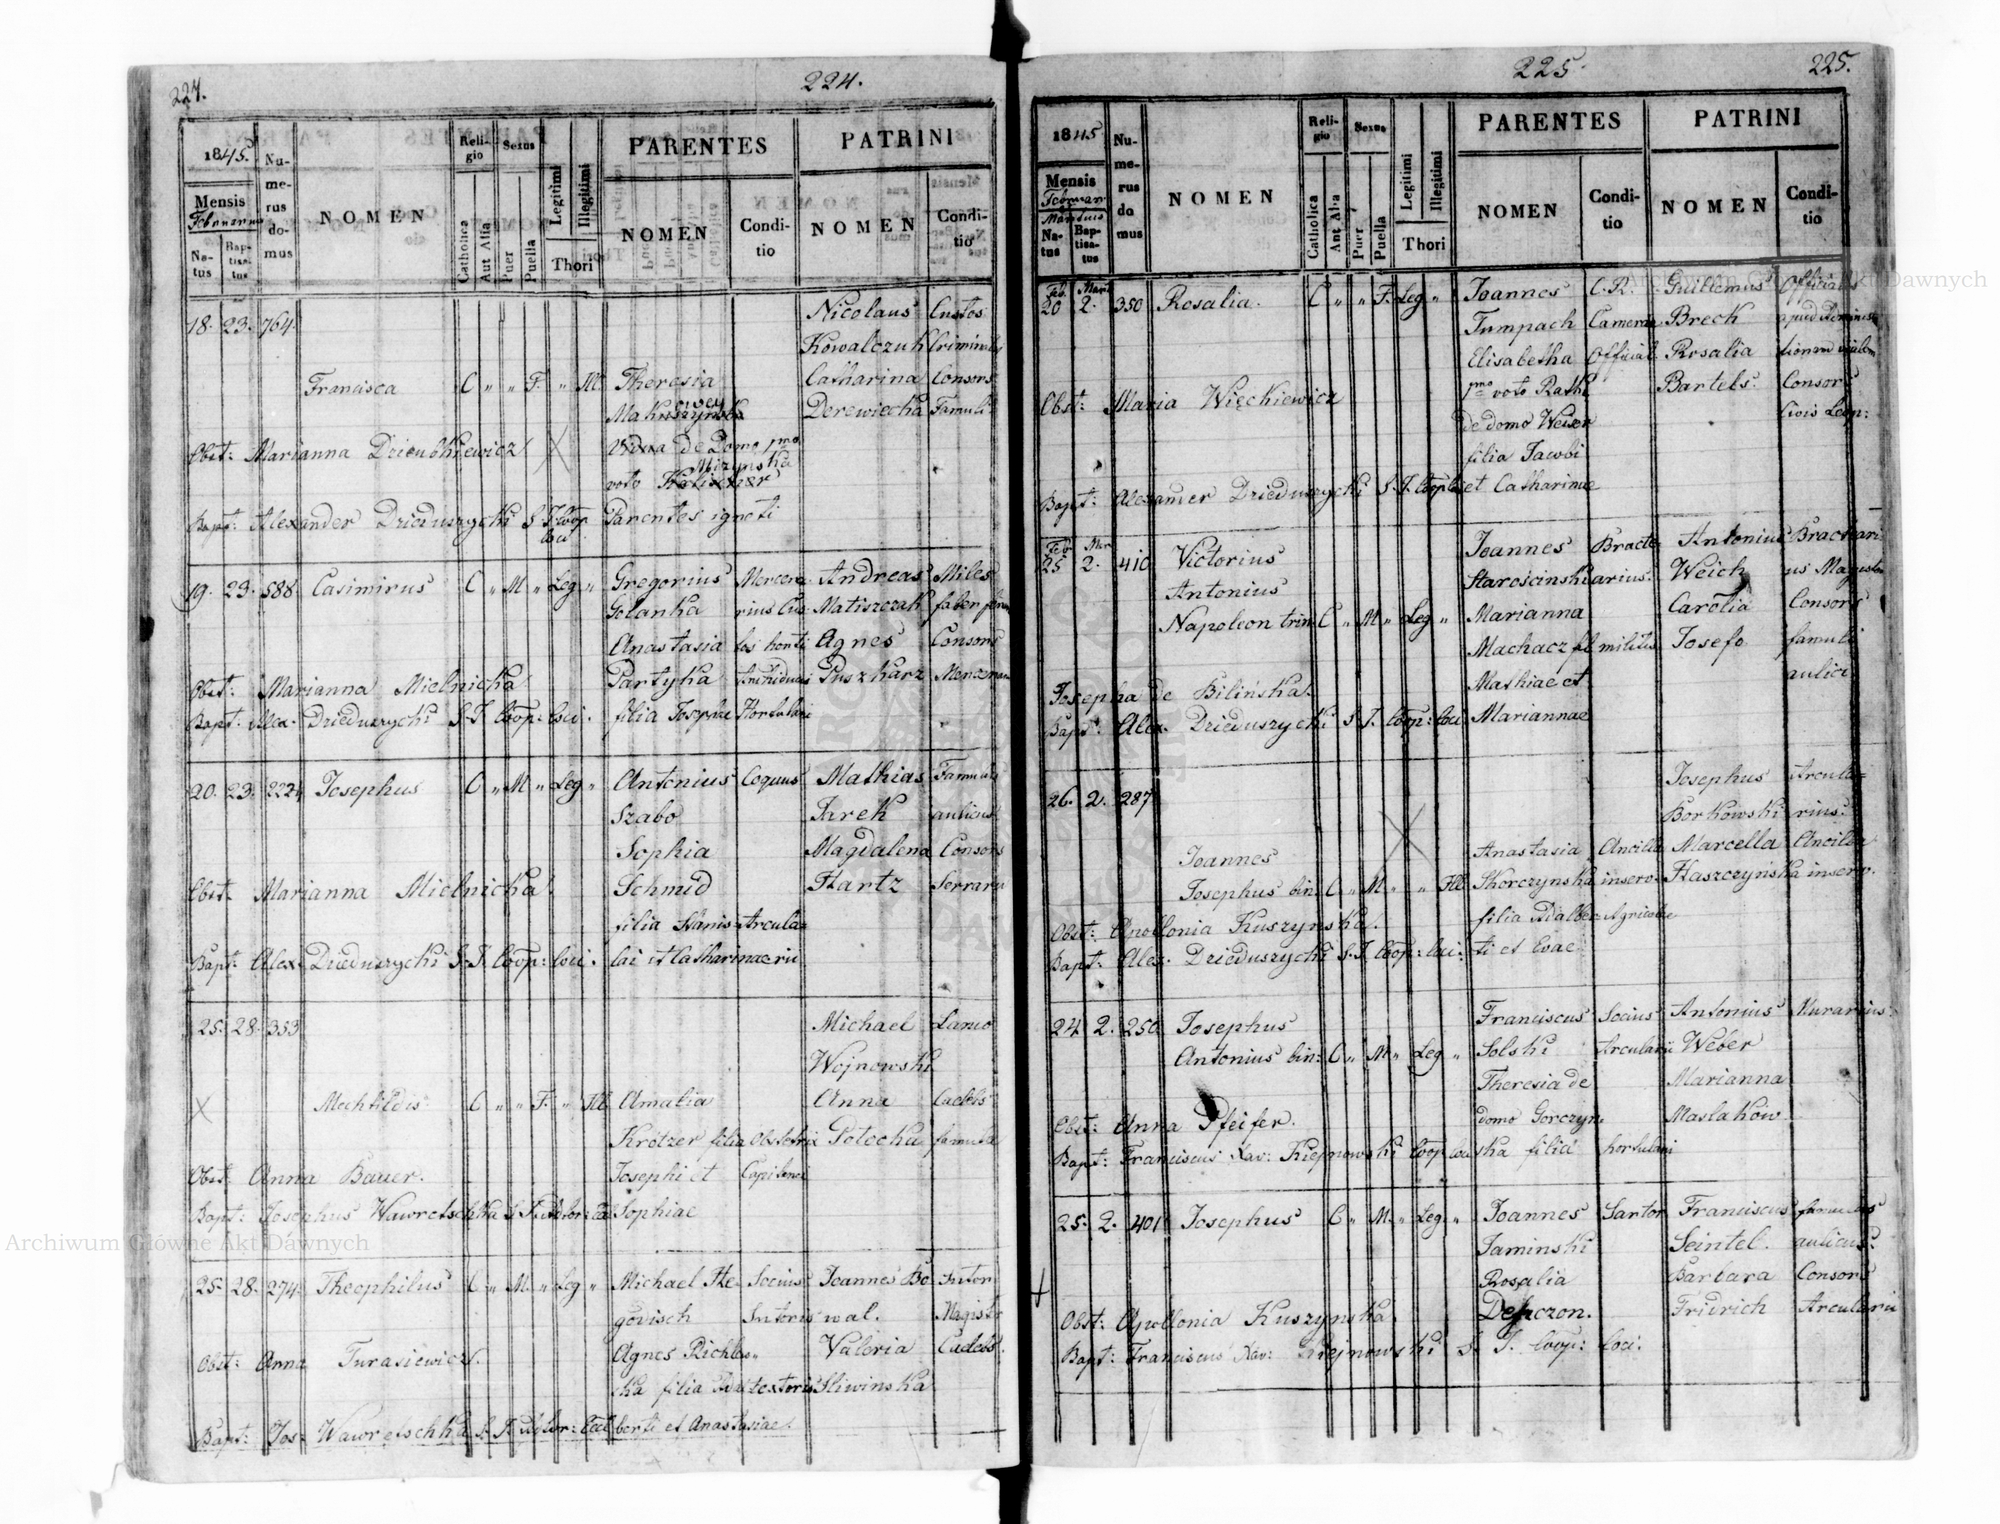 224.
224.
1845.
Mensis
Februarius
Natus
Baptisatus
Numerus domus
NOMEN
Religio
Catholica
Aut Alia
Sexus
Puer
Puella
Legitimi
Illegitimi
Thori
PARENTES
NOMEN
Conditio
PATRINI
NOMEN
Conditio
18. 23. 764. Nicolaus Custos
Kowalczuk Criminalis
Francisca C " " F. " Ill. Theresia Catharina Consors
Derewiecka Famuli
Obst: Marianna Vidua de Domo pmo
voto
Bapt: Alexander Dzieduszycki S. J. Coop. loci Parentes ignoti
19. 23. 588. Casimirus C " M " Leg " Gregorius Mercena- Andreas Miles
Golanka rius Cus- Matiszczak faber
Anastasia tos horti Agnes Consors
Obst: Marianna Mielnicka Partyka Archiducis Puszkarz Mercenarii
Bapt: Alex. Dzieduszycki S. J. Coop: loci. filia Josephi Hortulani
20. 23. 222 Josephus C " M " Leg " Antonius Coquus Mathias Famulus
Szabo Turek aulicus
Sophia Magdalena Consors
Obst. Marianna Mielnicka Schmid Hartz Serrarii
filia Stanis- Arcula-
Bapt: Alex. Dzieduszycki S. J. Coop: loci. lai et Catharinae rii
25. 28. 353 Michael Lanio
Wojnowski
Mechtildis C " " F. " Ill Amalia Anna Caelebs
Krötzer filia Obstetrix Solecka famula
Obst: Anna Bauer. Josephi et
Bapt: Josephus Wawretschka S. J. Sophiae
25. 28. 274. Theophilus C " M. " Leg " Michael He- Socius Joannes Bo- Sutor
govisch Sutoris wal. Magister
Obst: Anna Turasiewicz. Agnes Valeria Caelebs.
ka filia Adal textoris Sliwinska
Bapt: Jos. Wawretschka S. J. berti et Anastasiae.
225.
225.
1845
Mensis
Februar
Martius
Natus
Baptisatus
Numerus domus
NOMEN
Religio
Catholica
Aut Alia
Sexus
Puer
Puella
Legitimi
Illegitimi
Thori
PARENTES
NOMEN
Conditio
PATRINI
NOMEN
Conditio
Feb. Mart
20 2. 350 Rosalia. C " " F. Leg " Joannes C. R. Guillemus Officialis
Tumpach Camerae Breck apud
Elisabetha Official. Rosalia
pmo voto Rath Bartels. Consors
Obst: Maria Więckiewicz de domo Weiser Civis Leop:
filia Jacobi
Bapt: Alexander Dzieduszycki S. J. Coop. et Catharinae
Feb Mar
25 2. 410 Victorius Joannes Bracte- Antonius Bractari-
Antonius Staroscinski arius. Weich us Magister
Napoleon trin. C " M " Leg " Marianna Carolia Consors
Machacz fil militis Josefo famuli
Josepha de Bilińska. Mathiae et aulici
Bapt: Alex. Dzieduszycki S. J. Coop: loci Mariannae
26. 2. 287 Josephus Arcula-
Borkowski rius.
Joannes Anastasia Ancilla Marcella Ancilla
Josephus bin. C " M. " " Ill Skorczynska inserv. Haszczynska inserv.
Obst: Apollonia Kuszynska. filia Adalber- Agricolae
Bapt: Alex. Dzieduszycki S. J. Coop: loci: ti et Evae
24 2. 250 Josephus Franciscus Socius Antonius Murarius.
Antonius bin: C " M. " Leg " Solski Arcularii Weber
Theresia de Marianna
Obst: Anna Pfeifer. domo Gorczyn- Maslakow
Bapt: Franciscus Xav: Kiejnowski Coop loci ska filia hortulani
25. 2. 401 Josephus C " M. " Leg. " Joannes Sartor Franciscus famulus
Jaminski Seintel. aulicus.
Rosalia Barbara Consors
Obst: Apollonia Kuszynska. Fridrich Arcularii
Bapt: Franciscus Xav: Kiejnowski S. J. Coop: loci.
Archiwum Główne Akt Dawnych
Archiwum Główne Akt Dawnych